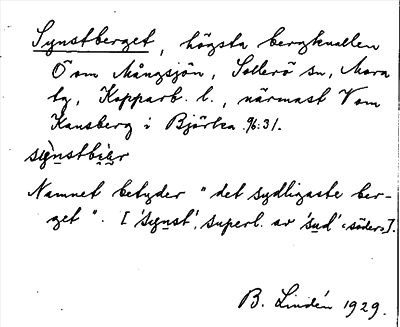 Synstberget, högsta bergknallen
Ö om Mångsjön, Sollerö sn, Mora
tg, Kopparb. l., närmast V om
Kansberg i Björka. 96:31.
synstbi̯er
Namnet betyder "det sydligaste ber-
get". ['synst', superl. av 'sud' <söder>].
B. Lindén 1929.